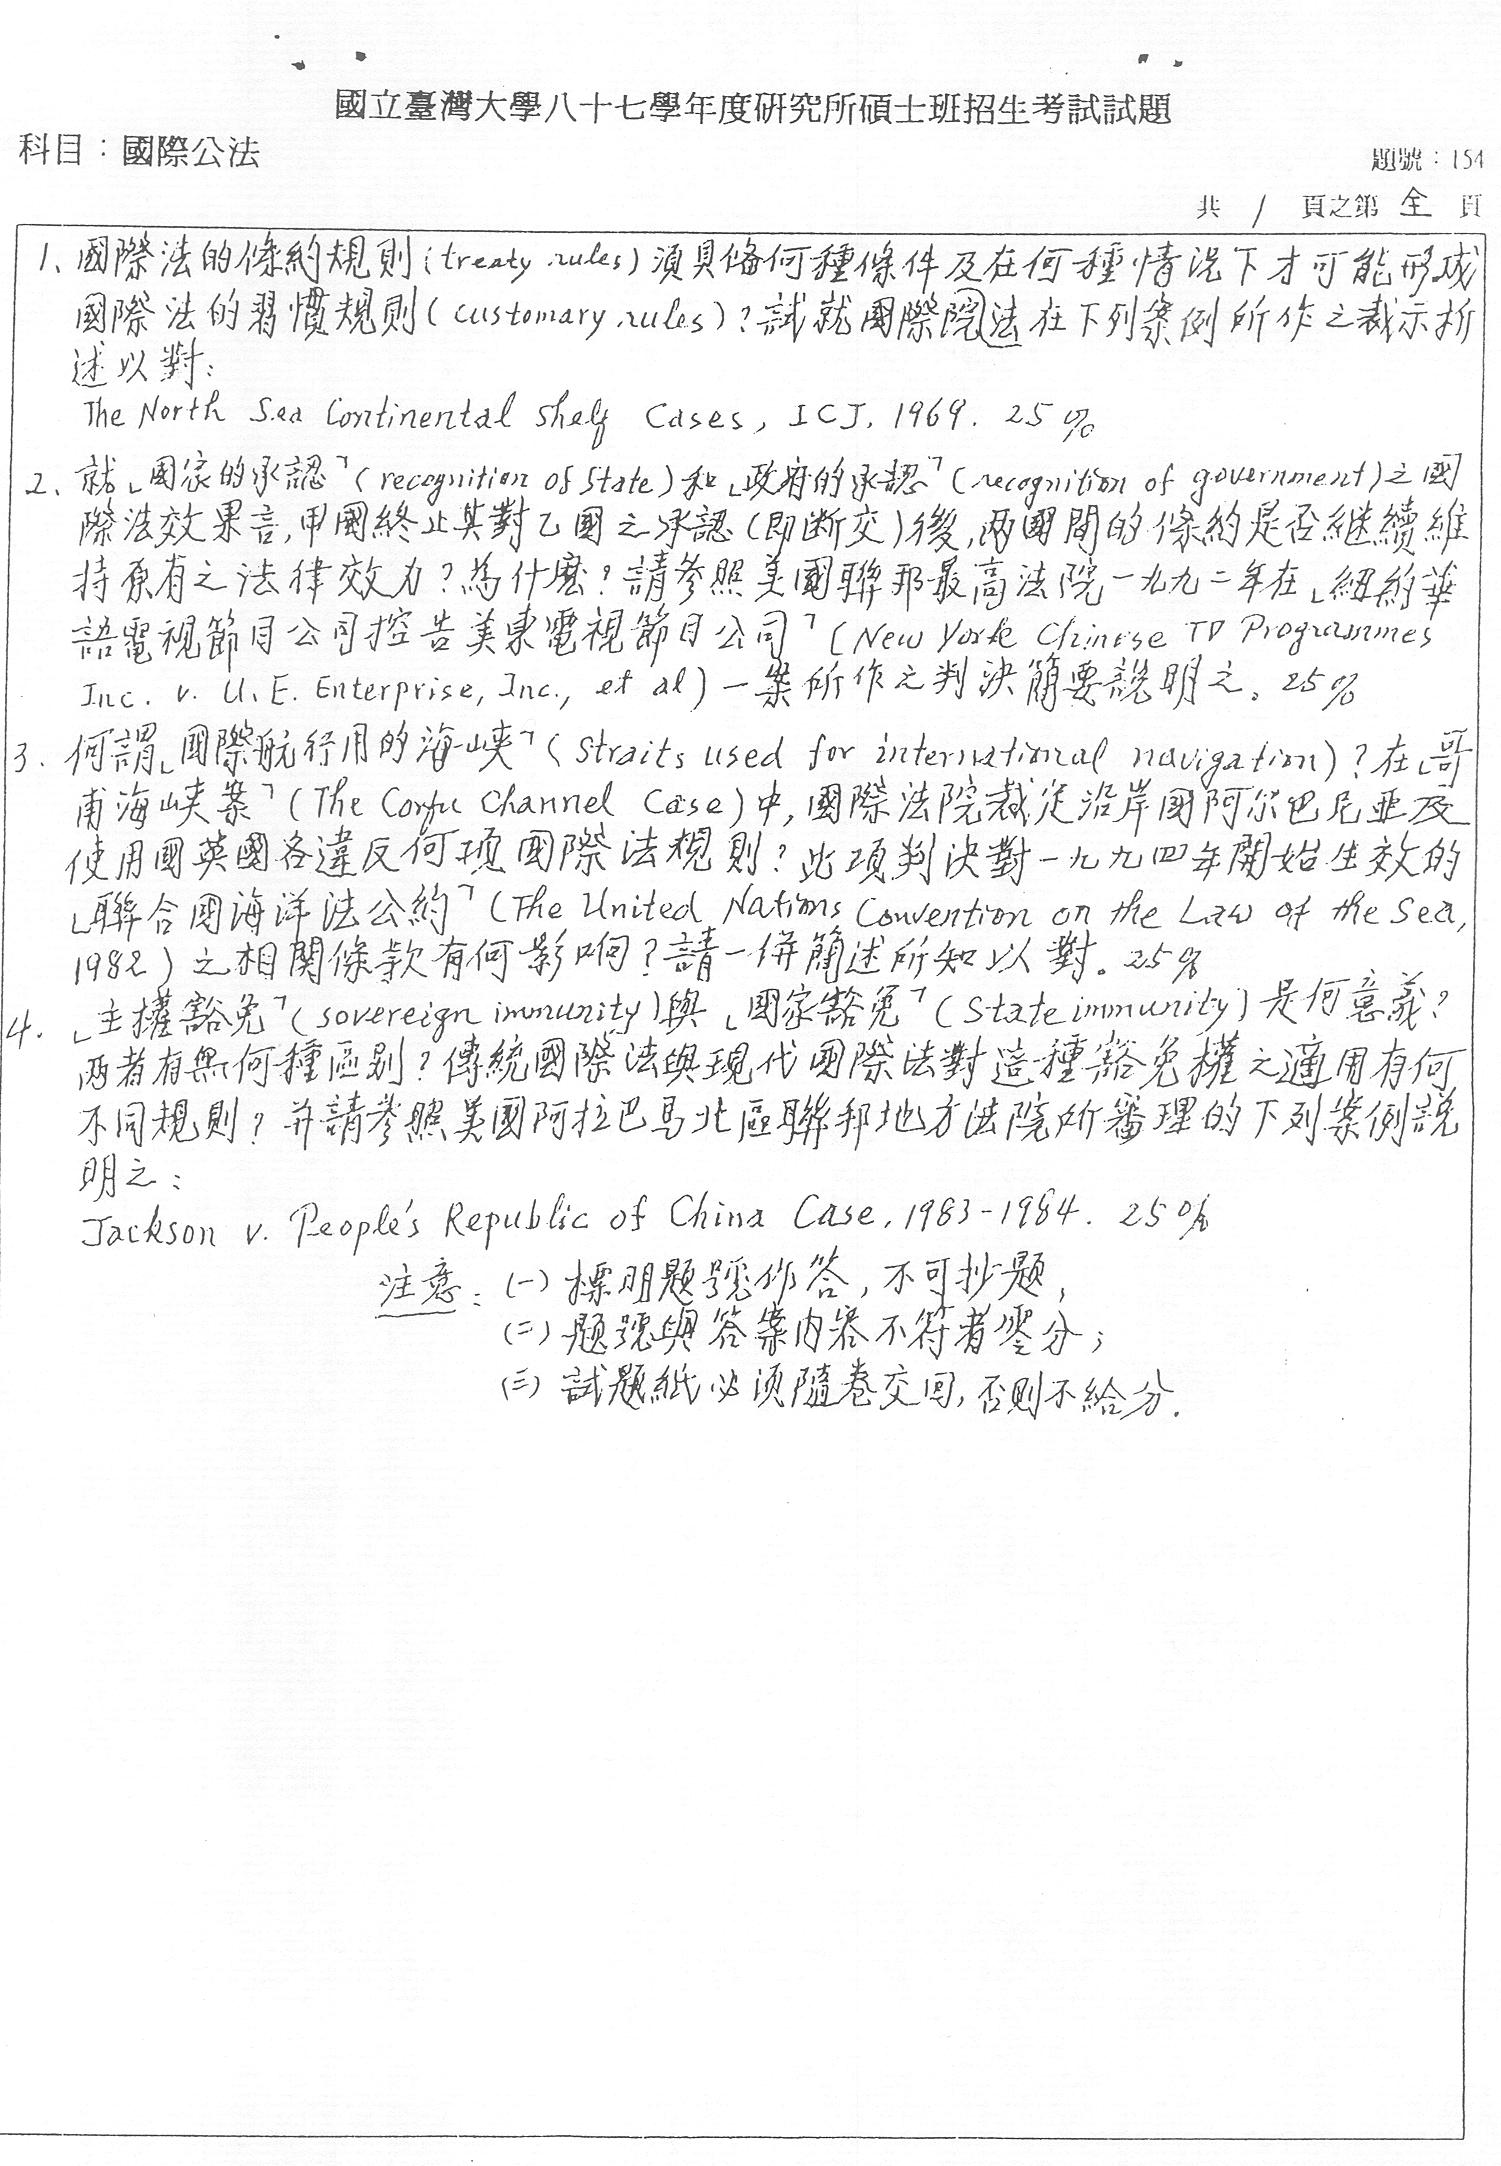 國立臺灣大學八十七學年度研究所碩士班招生考試試題
科目：國際公法
題號：154
共 1 頁之第 全 頁
1、國際法的條約規則（treaty rules）須具備何種條件及在何種情況下才可能形成
國際法的習慣規則（customary rules）？試就國際院法在下列案例所作之裁示析
述以對：
The North Sea Continental Shelf Cases, ICJ, 1969. 25%
2、就「國家的承認」（recognition of State）和「政府的承認」（recognition of government）之國
際法效果言，甲國終止其對乙國之承認（即斷交）後，兩國間的條約是否継續維
持原有之法律效力？為什麼？請參照美國聯邦最高法院一九九二年在「紐約華
語電視節目公司控告美東電視節目公司」（New York Chinese TV Programmes
Inc. v. U.E. Enterprise, Inc., et al）一案所作之判決簡要說明之。25%
3. 何謂「國際航行用的海峽」（straits used for international navigation）？在「哥
甫海峽案」（The Corfu Channel Case）中，國際法院裁定沿岸國阿尔巴尼亚及
使用國英國各違反何項國際法規則？此項判決對一九九四年開始生效的
「聯合國海洋法公約」（The United Nations Convention on the Law of the Sea,
1982）之相關條款有何影响？請一併簡述所知以對。25%
4. 「主權豁免」（sovereign immunity）與「國家豁免」（State immunity）是何意義？
两者有無何種區别？傳統國際法與現代國際法對這種豁免權之適用有何
不同規則？并請參照美國阿拉巴馬北區聯邦地方法院所審理的下列案例說
明之：
Jackson v. People's Republic of China Case, 1983-1984. 25%
注意：（一）標明題號作答，不可抄題；
（二）題號與答案内容不符者零分；
（三）試題紙必須隨卷交回，否則不給分．